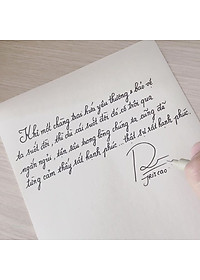 Khi một chàng trai hứa yêu thương & bảo vệ
ta suốt đời, thì dù cái suốt đời đó có trôi qua
ngắn ngủi, tôn sâu trong lòng chúng ta cũng đã
từng cảm thấy rất hạnh phúc... thật sự rất hạnh phúc.